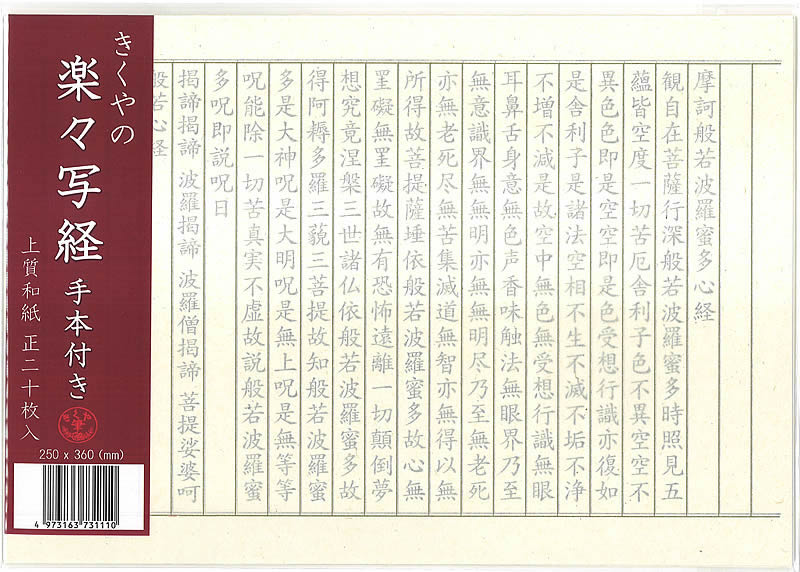 きくやの
楽々写経 手本付き
上質和紙 正二十枚入
きくや
筆
250 x 360 (mm)
4 973163 731110
摩訶般若波羅蜜多心経
観自在菩薩行深般若波羅蜜多時照見五
蘊皆空度一切苦厄舎利子色不異空空不
異色色即是空空即是色受想行識亦復如
是舎利子是諸法空相不生不滅不垢不浄
不増不減是故空中無色無受想行識無眼
耳鼻舌身意無色声香味触法無眼界乃至
無意識界無無明亦無無明尽乃至無老死
亦無老死尽無苦集滅道無智亦無得以無
所得故菩提薩埵依般若波羅蜜多故心無
罣礙無罣礙故無有恐怖遠離一切顛倒夢
想究竟涅槃三世諸仏依般若波羅蜜多故
得阿耨多羅三藐三菩提故知般若波羅蜜
多是大神呪是大明呪是無上呪是無等等
呪能除一切苦真実不虚故説般若波羅蜜
多呪即説呪曰
掲諦掲諦 波羅掲諦 波羅僧掲諦 菩提娑婆呵
般若心経